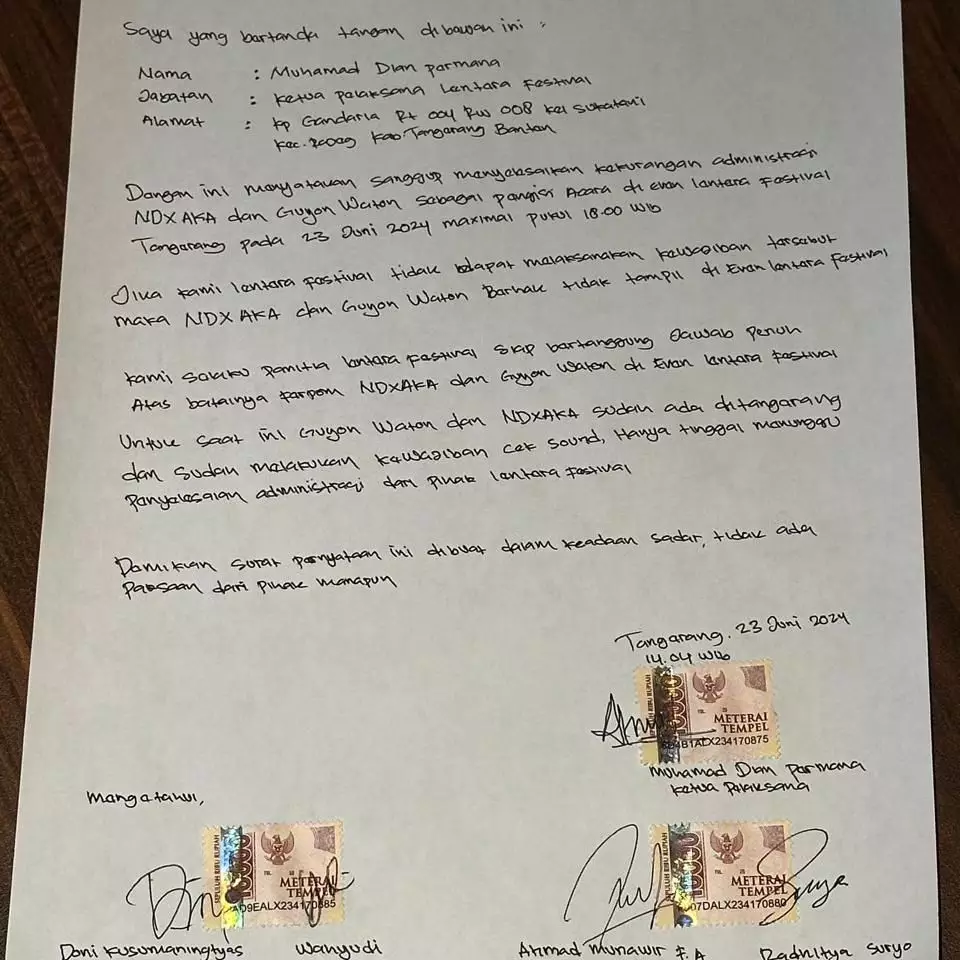 Saya yang bertanda tangan dibawah ini :
Nama : Muhamad Dian Permana
Jabatan : Ketua Pelaksana Lentera Festival
Alamat : Kp Gandaria Rt 004 Rw 008 Kel Sukatani
Kec. Rajeg Kab. Tangerang Banten
Dengan ini menyatakan sanggup menyelesaikan kekurangan administrasi
NDX AKA dan Guyon Waton sebagai pengisi Acara di Even lentera Festival
Tangerang pada 23 Juni 2024 maximal pukul 18.00 WIB
Jika kami lentera festival tidak dapat melaksanakan kewajiban tersebut
maka NDX AKA dan Guyon Waton Berhak tidak tampil di Even lentera festival
Kami selaku panitia lentera festival siap bertanggung Jawab penuh
Atas batalnya perfom NDXAKA dan Guyon Waton di Even lentera festival
Untuk saat ini Guyon Waton dan NDXAKA sudah ada ditangerang
dan sudah melakukan kewajiban cek sound, Hanya tinggal menunggu
Penyelesaian administrasi dari pihak lentera festival
Demikian surat pernyataan ini dibuat dalam keadaan sadar, tidak ada
Paksaan dari pihak manapun
Tangerang. 23 Juni 2024
14.04 WIB
SEPULUH RIBU RUPIAH
10000
TGL. 20
METERAI
TEMPEL
B1ALX234170875
Muhamad Dian Permana
Ketua Pelaksana
Mengetahui,
SEPULUH RIBU RUPIAH
10000
TGL. 20
METERAI
TEMPEL
D9EALX234170885
SEPULUH RIBU RUPIAH
10000
TGL. 20
METERAI
TEMPEL
07DALX234170880
Doni Kusumaningtyas Wahyudi
Ahmad Munawir F.A Radhitya Suryo